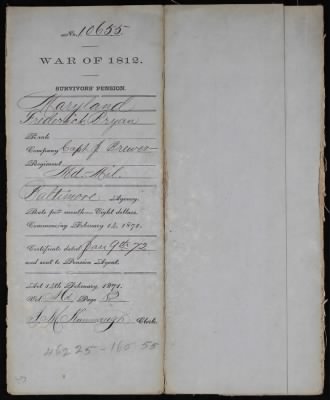 No. 10655
WAR OF 1812.
SURVIVORS' PENSION.
Maryland
Frederick Dryan
Rank
Company Capt J. Brewer
Regiment
Md Mil
Baltimore Agency.
Rate per month, Eight dollars.
Commencing February 14, 1871.
Certificate dated Jan 9th 72
and sent to Pension Agent.
Act 14th February, 1871.
Vol. Page
Clerk.